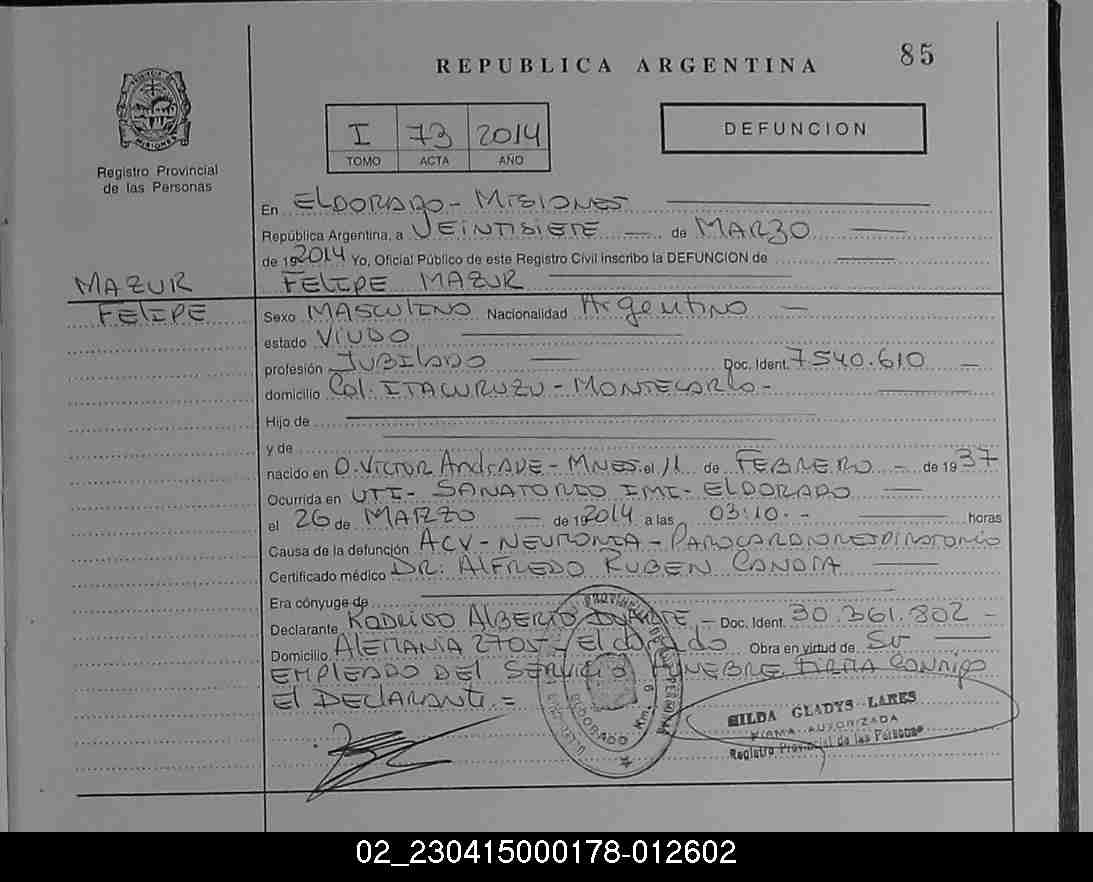 REPUBLICA ARGENTINA
85
I 73 2014
TOMO ACTA AÑO
DEFUNCION
Registro Provincial
de las Personas
En ELDORADO - MISIONES
República Argentina, a VEINTISIETE — de MARZO —
de 192014 Yo, Oficial Público de este Registro Civil inscribo la DEFUNCION de
MAZUR
FELIPE
FELIPE MAZUR
Sexo MASCULINO Nacionalidad Argentino —
estado VIUDO
profesión JUBILADO — Doc. Ident. 7540.610 —
domicilio Col. ITACURUZU - MONTECARLO -
Hijo de
y de
nacido en D. VICTOR AndrADE - MNES. el 11 de FEBRERO - de 1937
Ocurrida en UTI - SANATORIO IMI - ELDORADO —
el 26 de MARZO — de 192014 a las 03:10 - horas
Causa de la defunción ACV - NEUMONIA - PAROCARDIORESPIRATORIO
Certificado médico DR. ALFREDO RUBEN CANDIA —
Era cónyuge de
Declarante RODRIGO ALBERTO DUARTE, - Doc. Ident. 30.361.802 -
Domicilio ALEMANIA 2705 - Eldorado Obra en virtud de Su —
EMPLEADO DEL SERVICIO FUNEBRE FIRMA Conmigo
El DEClARANTE. =
ELDORADO
HILDA GLADYS LARES
FIRMA AUTORIZADA
Registro Provincial de las Personas
02_230415000178-012602